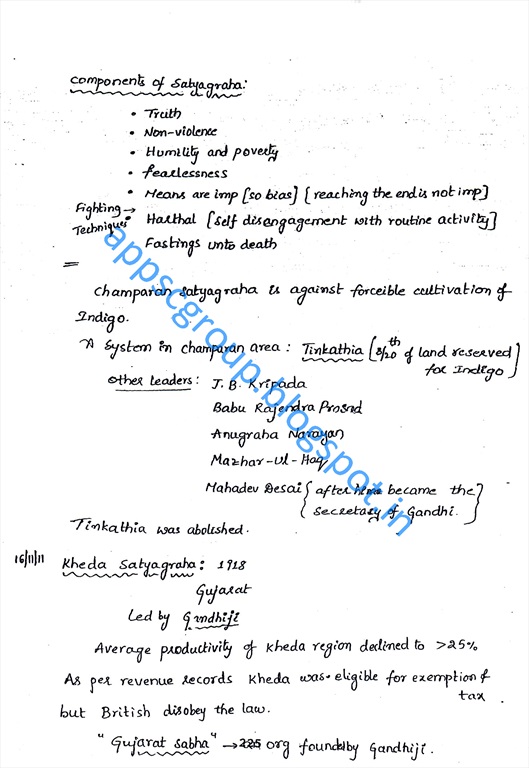 Components of Satyagraha:
• Truth
• Non-violence
• Humility and poverty
• fearlessness
• Means are imp [so bias] [reaching the end is not imp]
Fighting Techniques → • Harthal [self disangagement with routine activity]
Fastings unto death
Champaran Satyagraha is against forceible cultivation of
Indigo.
A System in champaran area : Tinkathia [3/20th of land reserved
for Indigo]
Other leaders : J. B. Kripada
Babu Rajendra Prosad
Anugraha Narayan
Mazhar-Ul-Haq
Mahadev Desai { after became the
secretary of Gandhi. }
Tinkathia was abolished.
16/11/11 Kheda Satyagraha : 1918
Gujarat
Led by Gandhiji
Average productivity of Kheda region declined to >25%
As per revenue records Kheda was eligible for exemption of
tax
but British disobey the law.
"Gujarat Sabha" → org founded by Gandhiji.
appscgroup.blogspot.in